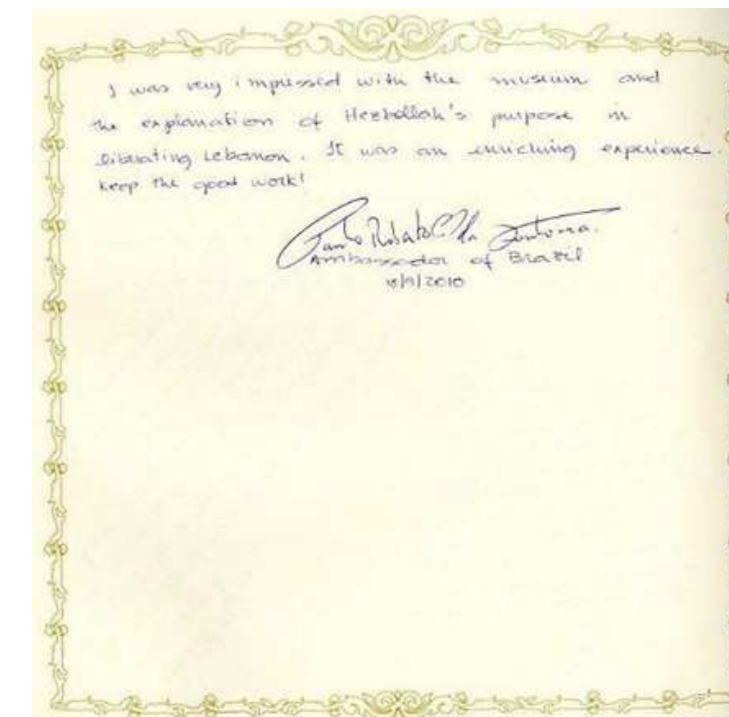 I was very impressed with the museum and
the explanation of Hezbollah's purpose in
liberating Lebanon. It was an enriching experience.
Keep the good work!
Paulo Roberto
Ambassador of Brazil
/9/2010